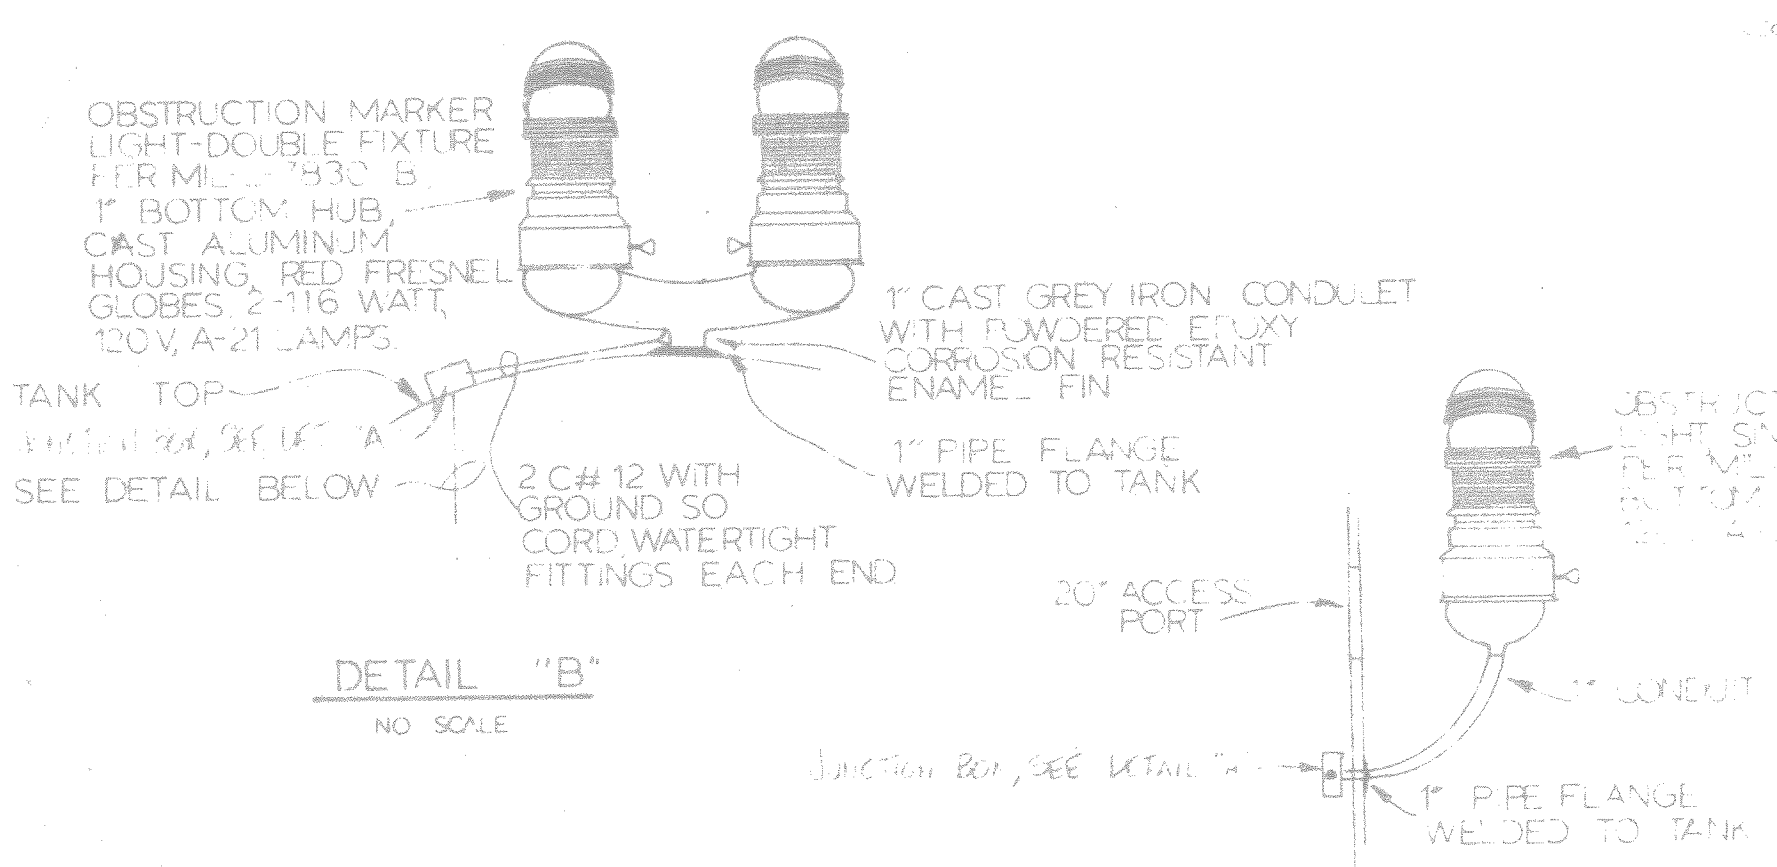 OBSTRUCTION MARKER
LIGHT-DOUBLE FIXTURE
PER MIL 7830 B
1" BOTTOM HUB,
CAST ALUMINUM
HOUSING, RED FRESNEL
GLOBES, 2-116 WATT,
120V, A-21 LAMPS.
TANK TOP
JUNCTION BOX, SEE DET "A
SEE DETAIL BELOW
2 C# 12 WITH
GROUND SO
CORD, WATERTIGHT
FITTINGS EACH END
1" CAST GREY IRON CONDULET
WITH POWDERED EPOXY
CORROSION RESISTANT
ENAMEL FIN
1" PIPE FLANGE
WELDED TO TANK
DETAIL "B"
NO SCALE
OBSTRUCT
LIGHT, SIN
PER MIL
BOTTOM
20" ACCESS
PORT
1" CONDUIT
JUNCTION BOX, SEE DETAIL "A"
1" PIPE FLANGE
WELDED TO TANK